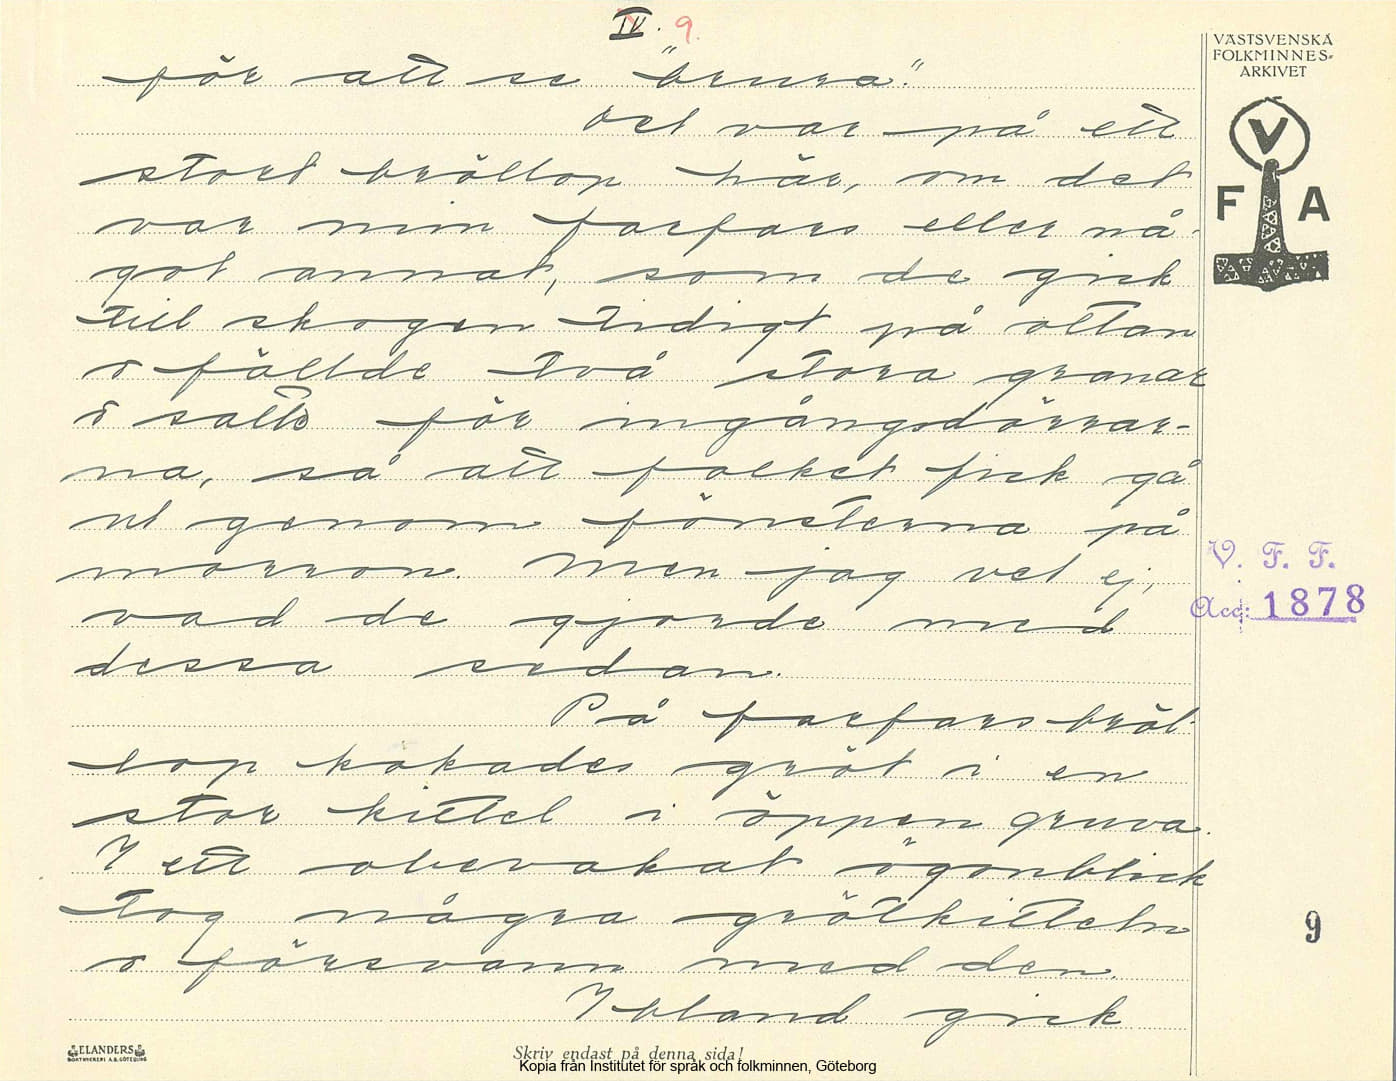 IV. 9.
för att se "brura".
Det var på ett
stort bröllop här, om det
var min farfars eller nå-
got annat, som de gick
till skogen tidigt på ottan
o fällde två stora granar
o satte för ingångsdörrar-
na, så att folket fick gå
ut genom fönsterna på
morron. Men jag vet ej,
vad de gjorde med
dessa sedan.
På farfars bröl-
lop kokades gröt i en
stor kittel i öppen gruva.
I ett obevakat ögonblick
tog några grötkitteln
o försvann med den.
Ibland gick
VÄSTSVENSKA
FOLKMINNES-
ARKIVET
V
F A
V. F. F.
Acc: 1878
9
ELANDERS
BOKTRYCKERI A.B. GÖTEBORG
Skriv endast på denna sida!
Kopia från Institutet för språk och folkminnen, Göteborg